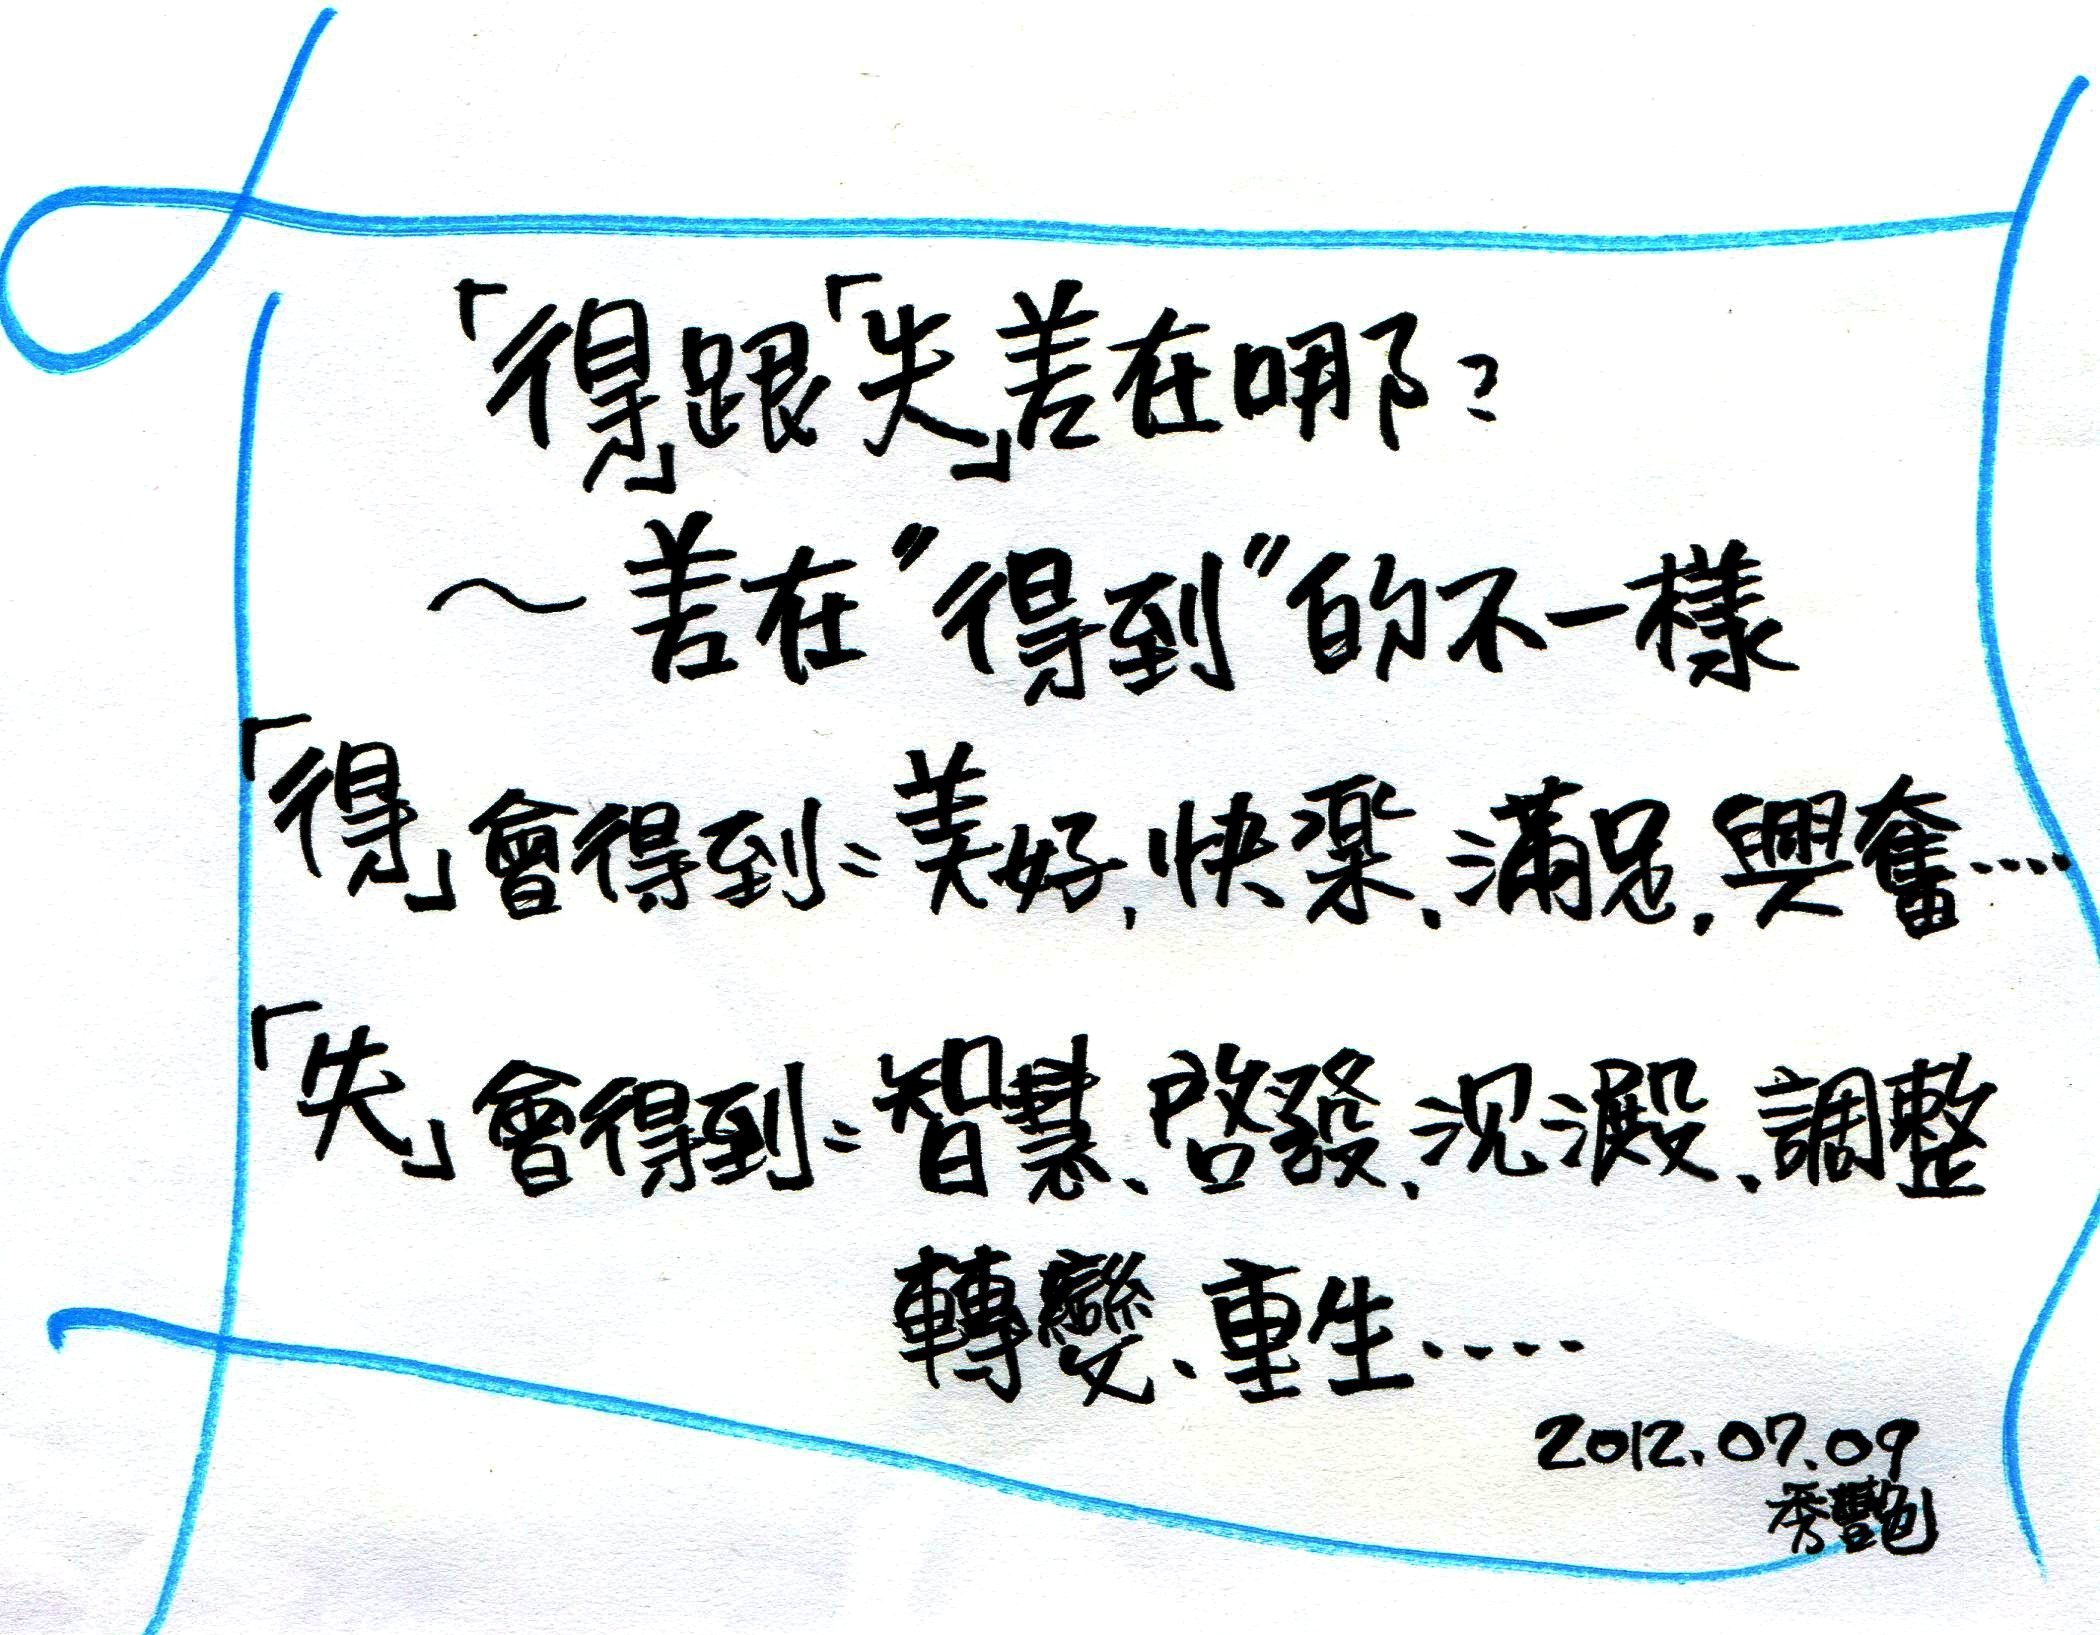 「得」跟「失」差在哪?
～差在"得到"的不一樣
「得」會得到:美好,快樂,滿足,興奮....
「失」會得到:智慧、啓發、沉澱、調整
轉變、重生....
2012.07.09
秀艷